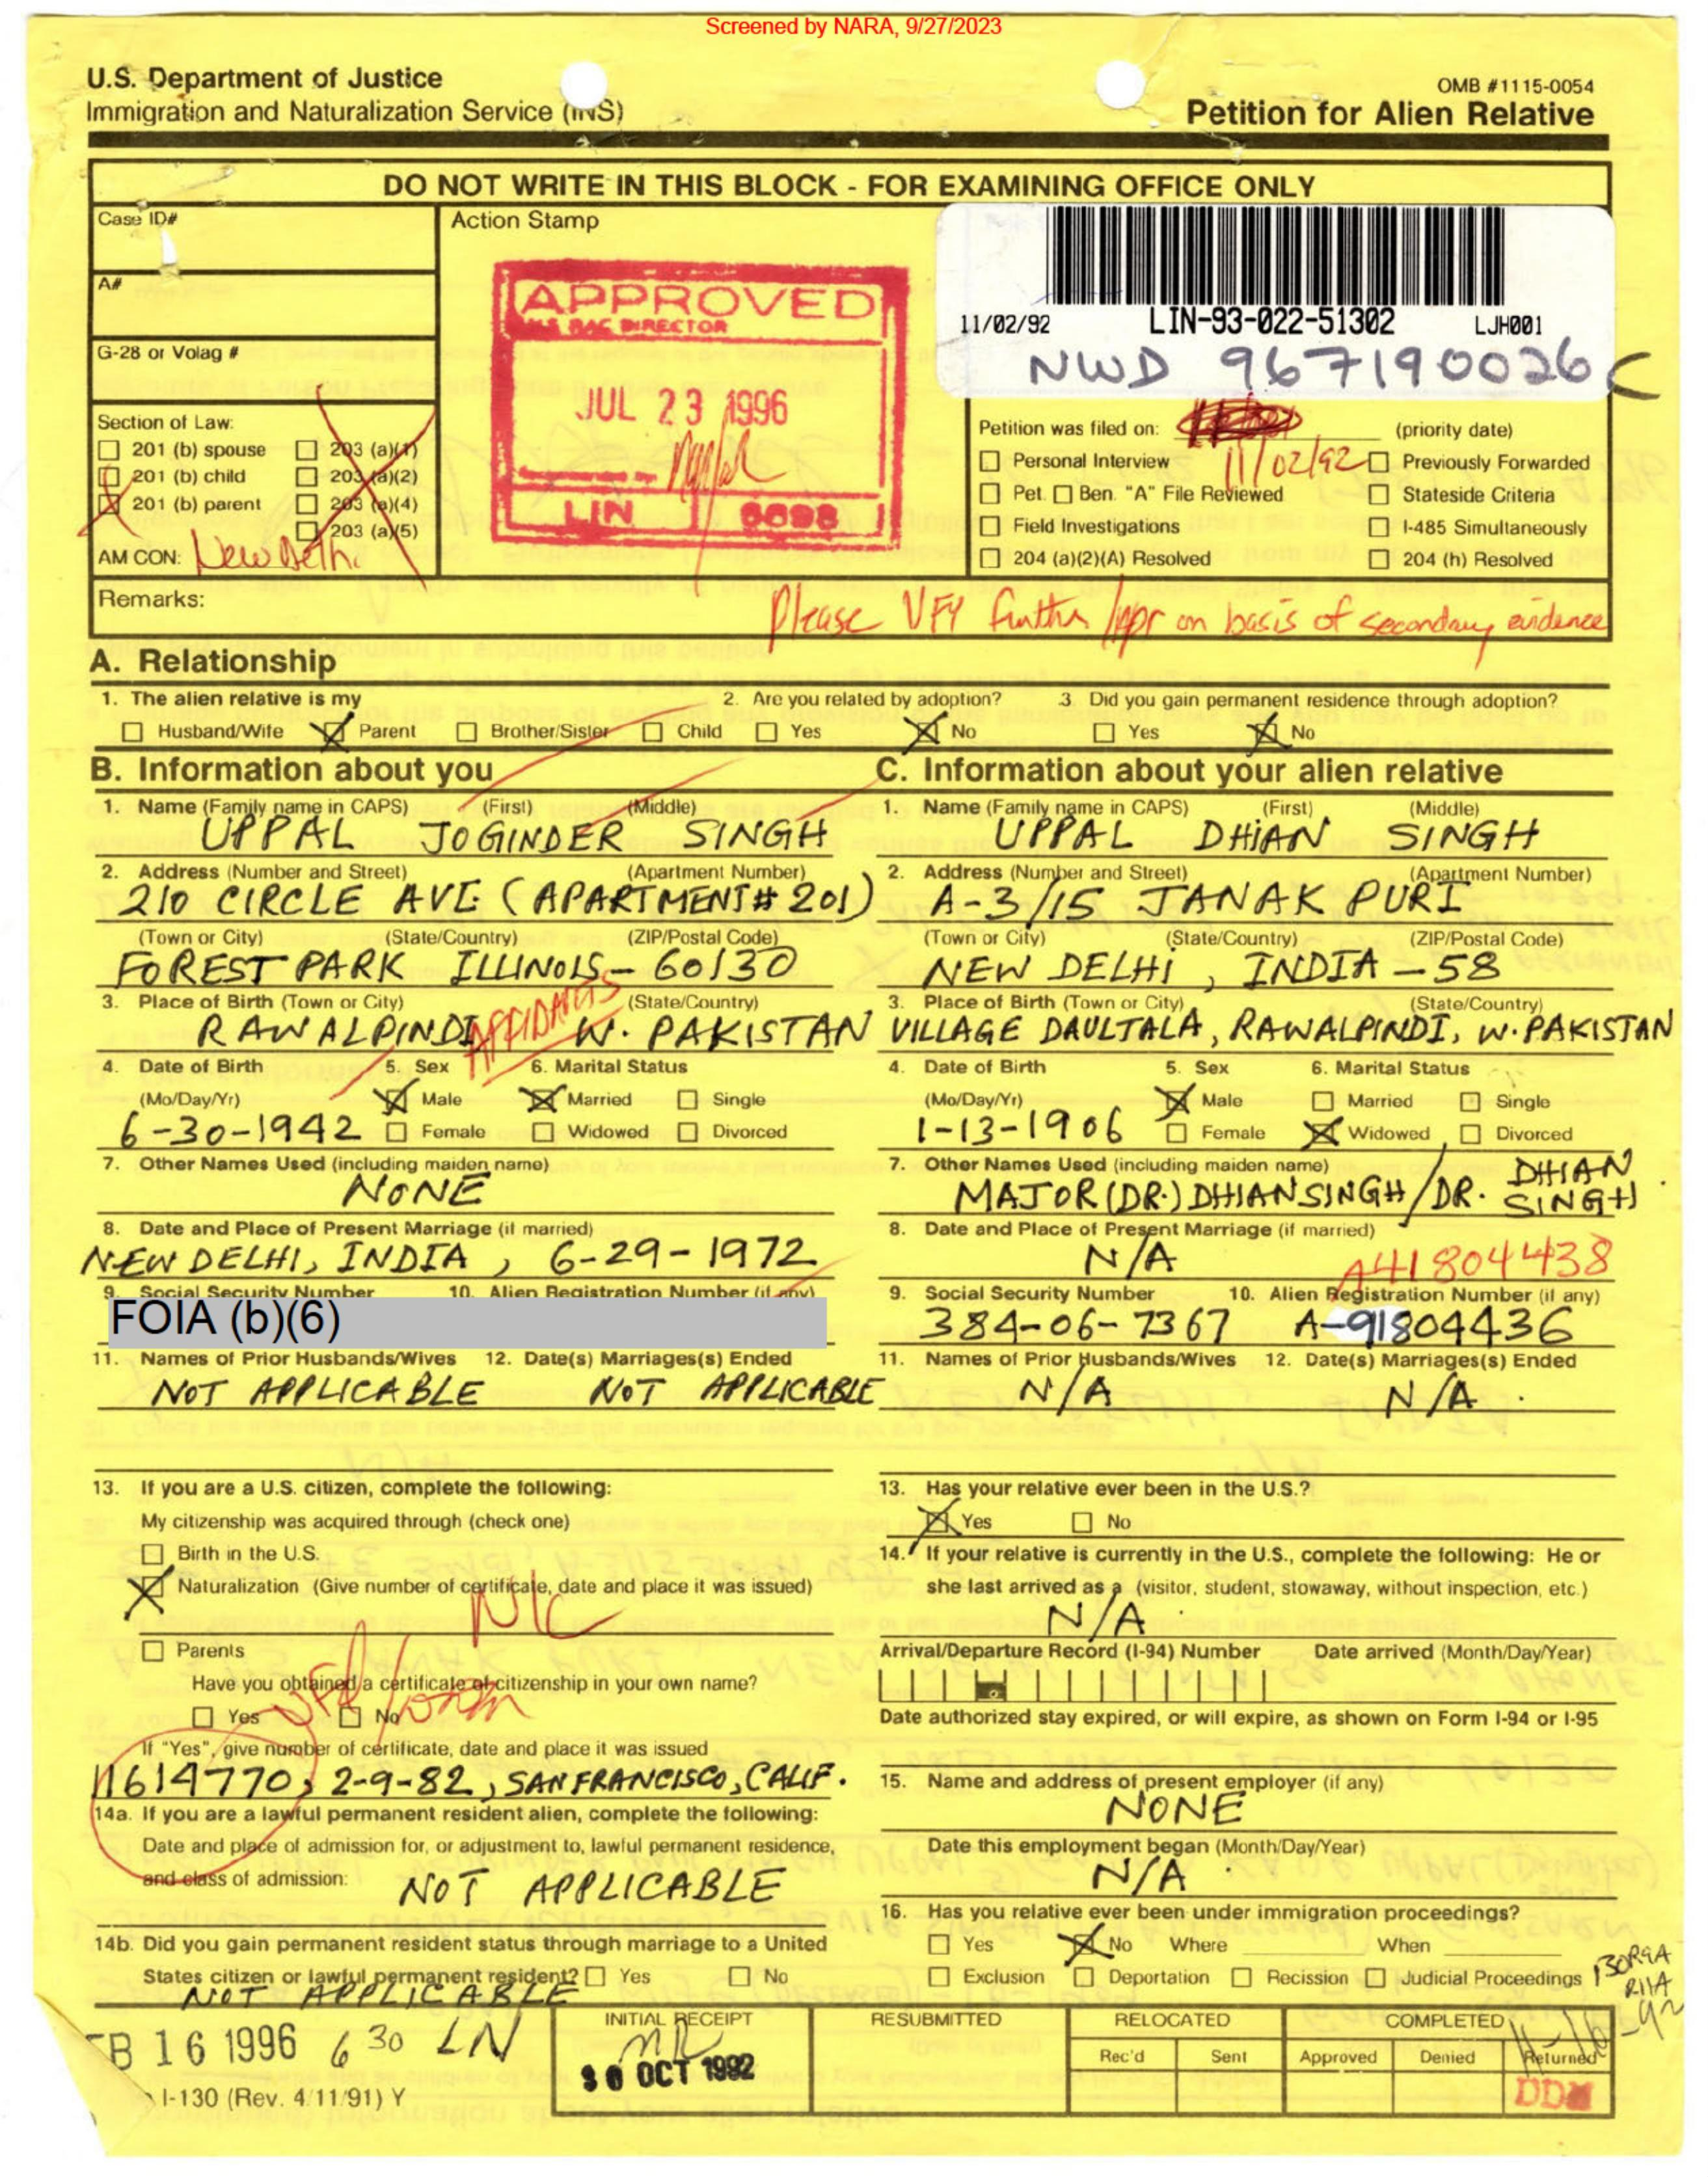 Screened by NARA, 9/27/2023
U.S. Department of Justice
Immigration and Naturalization Service (INS)
OMB #1115-0054
Petition for Alien Relative
DO NOT WRITE IN THIS BLOCK - FOR EXAMINING OFFICE ONLY
Case ID#
Action Stamp
A#
G-28 or Volag #
APPROVED
DIRECTOR
JUL 23 1996
LIN
11/02/92 LIN-93-022-51302 LJH001
NWD 967190026 C
Section of Law:
201 (b) spouse 203 (a)(1)
201 (b) child 203 (a)(2)
201 (b) parent 203 (a)(4)
203 (a)(5)
AM CON: New Delhi
Petition was filed on: (priority date)
11/02/92
Personal Interview Previously Forwarded
Pet. Ben. "A" File Reviewed Stateside Criteria
Field Investigations I-485 Simultaneously
204 (a)(2)(A) Resolved 204 (h) Resolved
Remarks:
Please VFY further/Apr on basis of secondary evidence
A. Relationship
1. The alien relative is my 2. Are you related by adoption? 3. Did you gain permanent residence through adoption?
Husband/Wife Parent Brother/Sister Child Yes No Yes No
B. Information about you
1. Name (Family name in CAPS) (First) (Middle)
UPPAL JOGINDER SINGH
2. Address (Number and Street) (Apartment Number)
210 CIRCLE AVE (APARTMENT# 201)
(Town or City) (State/Country) (ZIP/Postal Code)
FOREST PARK ILLINOIS - 60130
3. Place of Birth (Town or City) (State/Country)
RAWALPINDI W. PAKISTAN
AFFIDAVITS
4. Date of Birth 5. Sex 6. Marital Status
(Mo/Day/Yr) Male Married Single
6-30-1942 Female Widowed Divorced
7. Other Names Used (including maiden name)
NONE
8. Date and Place of Present Marriage (if married)
NEW DELHI, INDIA, 6-29-1972
9. Social Security Number 10. Alien Registration Number (if any)
FOIA (b)(6)
11. Names of Prior Husbands/Wives 12. Date(s) Marriages(s) Ended
NOT APPLICABLE NOT APPLICABLE
13. If you are a U.S. citizen, complete the following:
My citizenship was acquired through (check one)
Birth in the U.S.
Naturalization (Give number of certificate, date and place it was issued)
Parents
Have you obtained a certificate of citizenship in your own name?
Yes No
If "Yes", give number of certificate, date and place it was issued
11614770, 2-9-82, SAN FRANCISCO, CALIF.
14a. If you are a lawful permanent resident alien, complete the following:
Date and place of admission for, or adjustment to, lawful permanent residence,
and class of admission:
NOT APPLICABLE
14b. Did you gain permanent resident status through marriage to a United
States citizen or lawful permanent resident? Yes No
NOT APPLICABLE
C. Information about your alien relative
1. Name (Family name in CAPS) (First) (Middle)
UPPAL DHIAN SINGH
2. Address (Number and Street) (Apartment Number)
A-3/15 JANAK PURI
(Town or City) (State/Country) (ZIP/Postal Code)
NEW DELHI, INDIA - 58
3. Place of Birth (Town or City) (State/Country)
VILLAGE DAULTALA, RAWALPINDI, W. PAKISTAN
4. Date of Birth 5. Sex 6. Marital Status
(Mo/Day/Yr) Male Married Single
1-13-1906 Female Widowed Divorced
7. Other Names Used (including maiden name)
MAJOR (DR.) DHIAN SINGH / DR. DHIAN SINGH
8. Date and Place of Present Marriage (if married)
N/A
A41804438
9. Social Security Number 10. Alien Registration Number (if any)
384-06-7367 A-91804436
11. Names of Prior Husbands/Wives 12. Date(s) Marriages(s) Ended
N/A N/A.
13. Has your relative ever been in the U.S.?
Yes No
14. If your relative is currently in the U.S., complete the following: He or
she last arrived as a (visitor, student, stowaway, without inspection, etc.)
N/A
Arrival/Departure Record (I-94) Number Date arrived (Month/Day/Year)
Date authorized stay expired, or will expire, as shown on Form I-94 or I-95
15. Name and address of present employer (if any)
NONE
Date this employment began (Month/Day/Year)
N/A
16. Has you relative ever been under immigration proceedings?
Yes No Where When
Exclusion Deportation Recission Judicial Proceedings
INITIAL RECEIPT RESUBMITTED RELOCATED COMPLETED
Rec'd Sent Approved Denied Returned
30 OCT 1992
11-16-92
B 16 1996 6 30 LN
I-130 (Rev. 4/11/91) Y